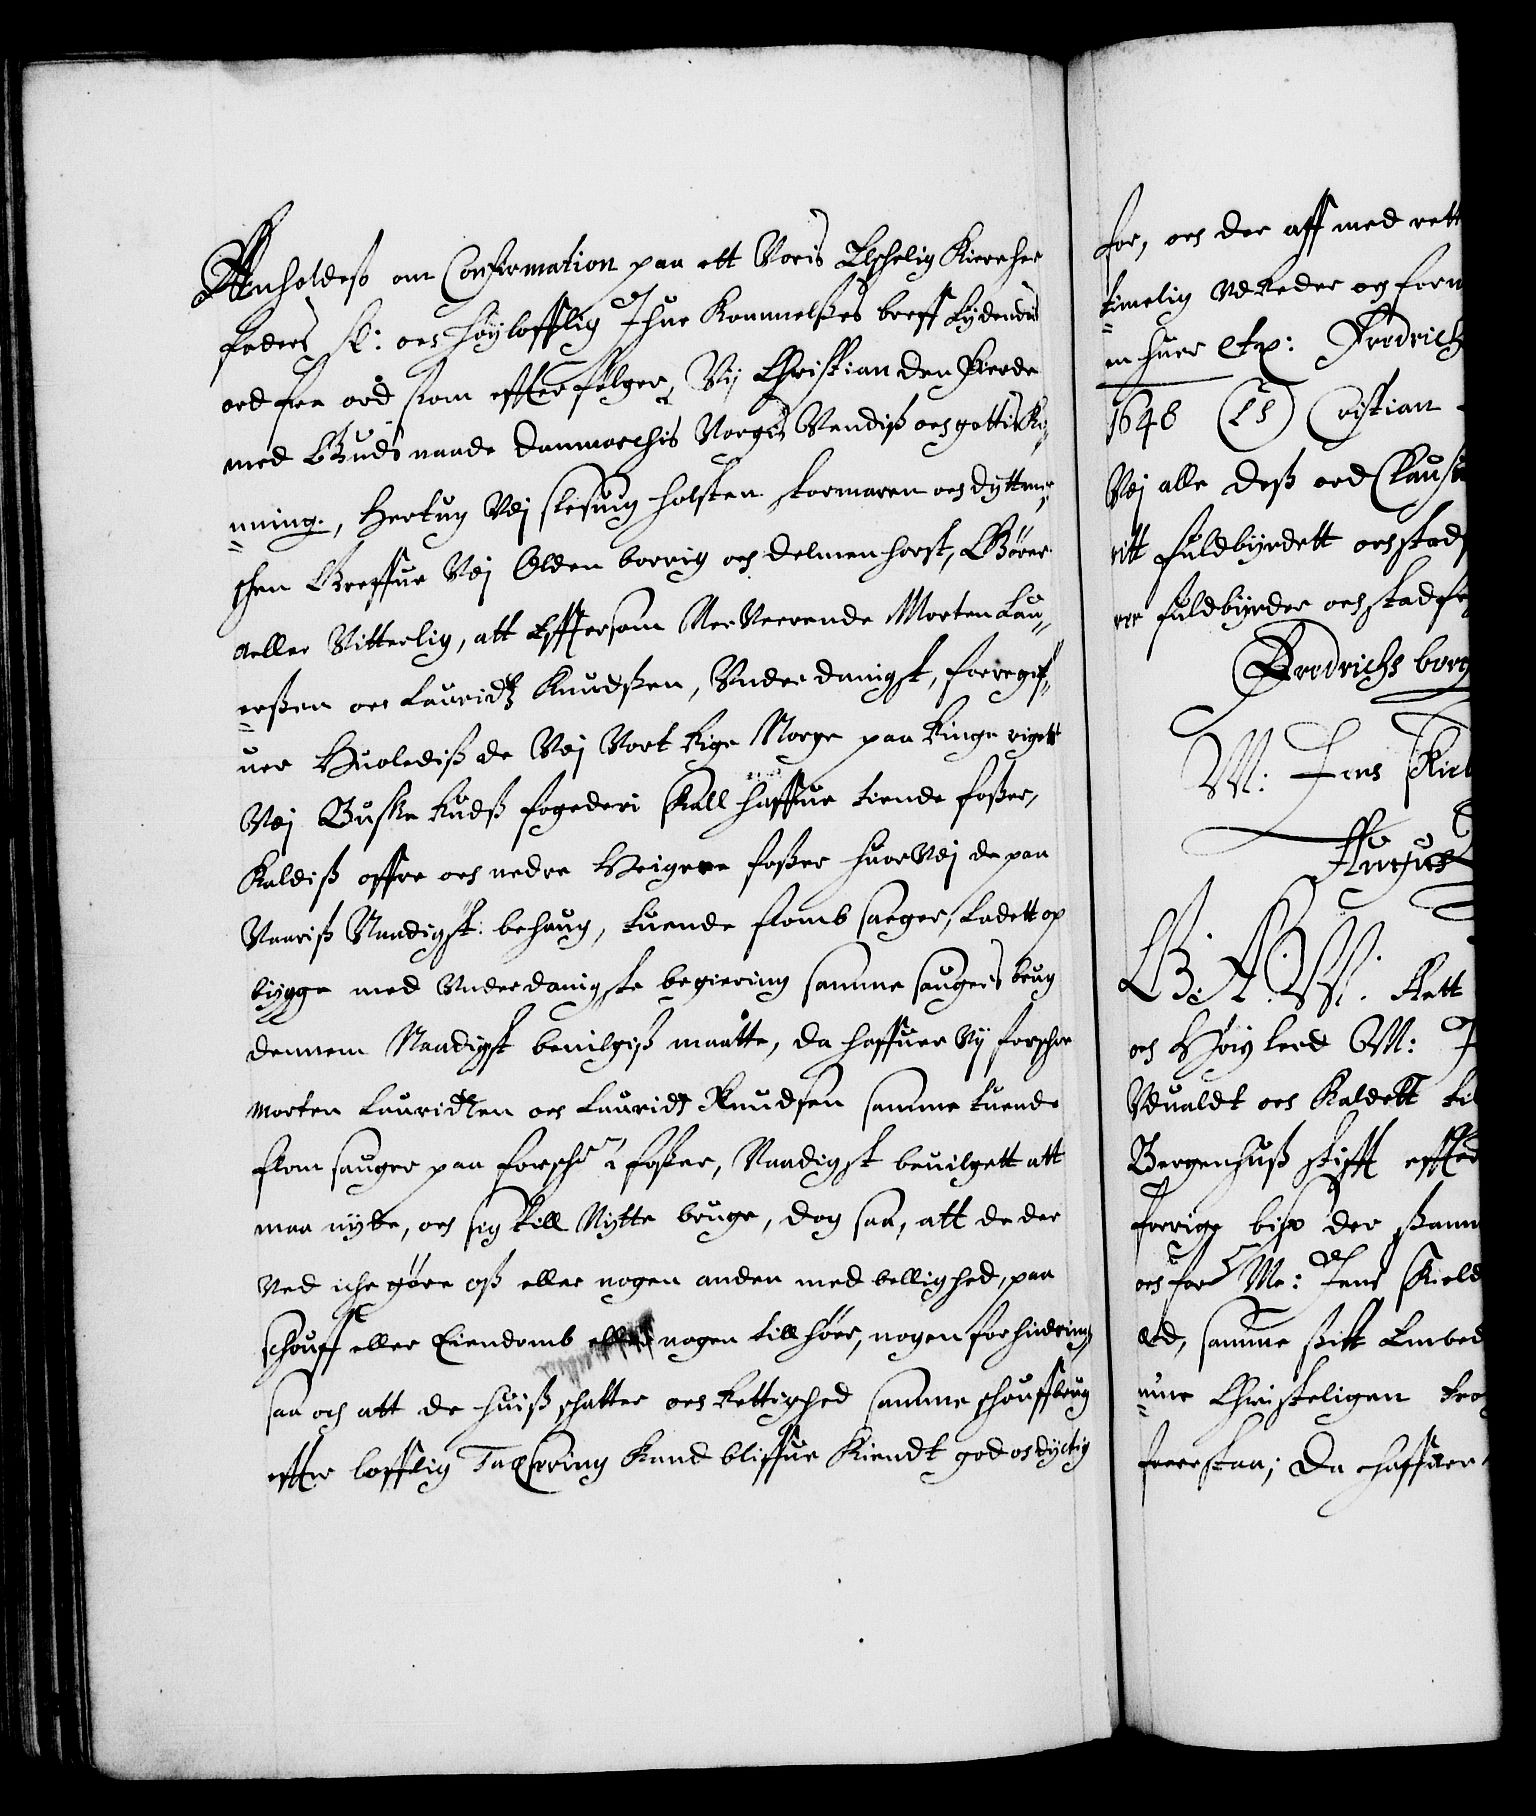 Anholdeß om Confirmation paa ett Voris Elschelig Kiere her
faders Sl: och høylofflig Ihue Kommelßes breff Lydendis
ord fra ord som effterfølger, Vij Christian den Fierde
med Guds naade Danmarchis Norgis Vendiß och gottis Ko,,
nning, Hertug Vdj Slesuig holsten stormaren och Dyttmer,,
schen Greffue Vdj Olden borrig och Delmenhorst, Giører
aller Vitterlig, att Efftersom Nerverende Morten Lau,,
ridßen och Lauridtz Knudßen, Underdanigst, forregif,,
uer Huolediß de Vdj Vort Rige Norge paa Ringe riget
Vdj Buskeruds fogederi Skall haffue tiende foßer,
Kaldiß offre och nedre foßer huor Vdj de paa
Vaariß Naadigst: behaug, tuende flomb sauger, ladett op
bygge med Underdanigste begiering samme saugers brug
dennem Naadigst beuilgiß maatte, da haffuer Vij forschre
Morten Lauridtzen och Lauridtz Knudsen samme tuende
flom sauger paa forschrne foßer, Naadigst beuilgett att
maa nyde, och sig till Nytte bruge, dog saa, att de der
Ved iche giøre oß eller nogen anden med bellighed, paa
schouff eller Eiendomb nogen tillhører, nogen forhindring,
saa och att de huiß schatter och Rettighed samme schouffbrug
effter lofflig Taxering kand bliffue Kiendt god och dyctig
for, och der aff med rett
timelig Vdreder og forn
en huer etp: Fredrich
1648 (LS) Cristian
Vdj alle deß ord Clausu
ritt fuldbyrdett och stadf
rer fuldbyrder och stadfe
Fredrichs borg
M: Jens
G. A. W. Att
och Høylerd M: J
Vdualdt och Kaldett til
Bergenhuß stifft effter
forrige bisp der samm
och for Me: Jens Skield
ed, samme stift Embed
nne Christeligen tro
forestaa; Da haffuer